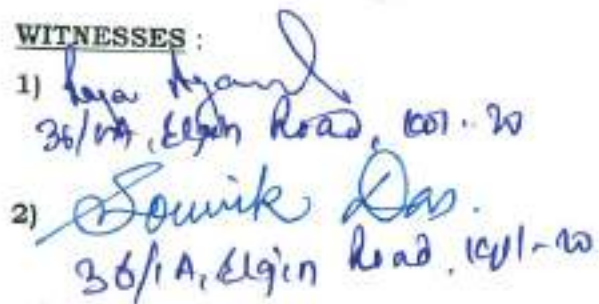 WITNESSES :
1)
36/1A, Elgin Road, Kol - 20
2) Souvik Das.
36/1A, Elgin Road, Kol - 20